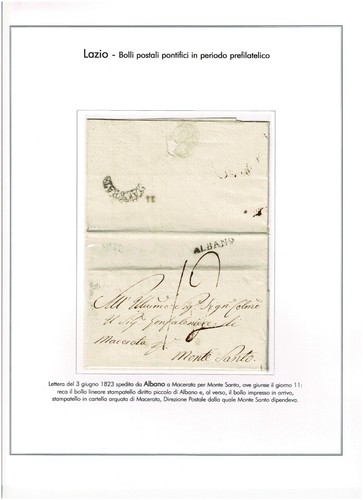 Lazio - Bolli postali pontifici in periodo prefilatelico
11
ALBANO
12
Sig.
Il Sig. Gonfaloniere di
Macerata
Monte Santo.
Lettera del 3 giugno 1823 spedita da Albano a Macerata per Monte Santo, ove giunse il giorno 11:
reca il bollo lineare stampatello diritto piccolo di Albano e, al verso, il bollo impresso in arrivo,
stampatello in cartella arquata di Macerata, Direzione Postale dalla quale Monte Santo dipendeva.